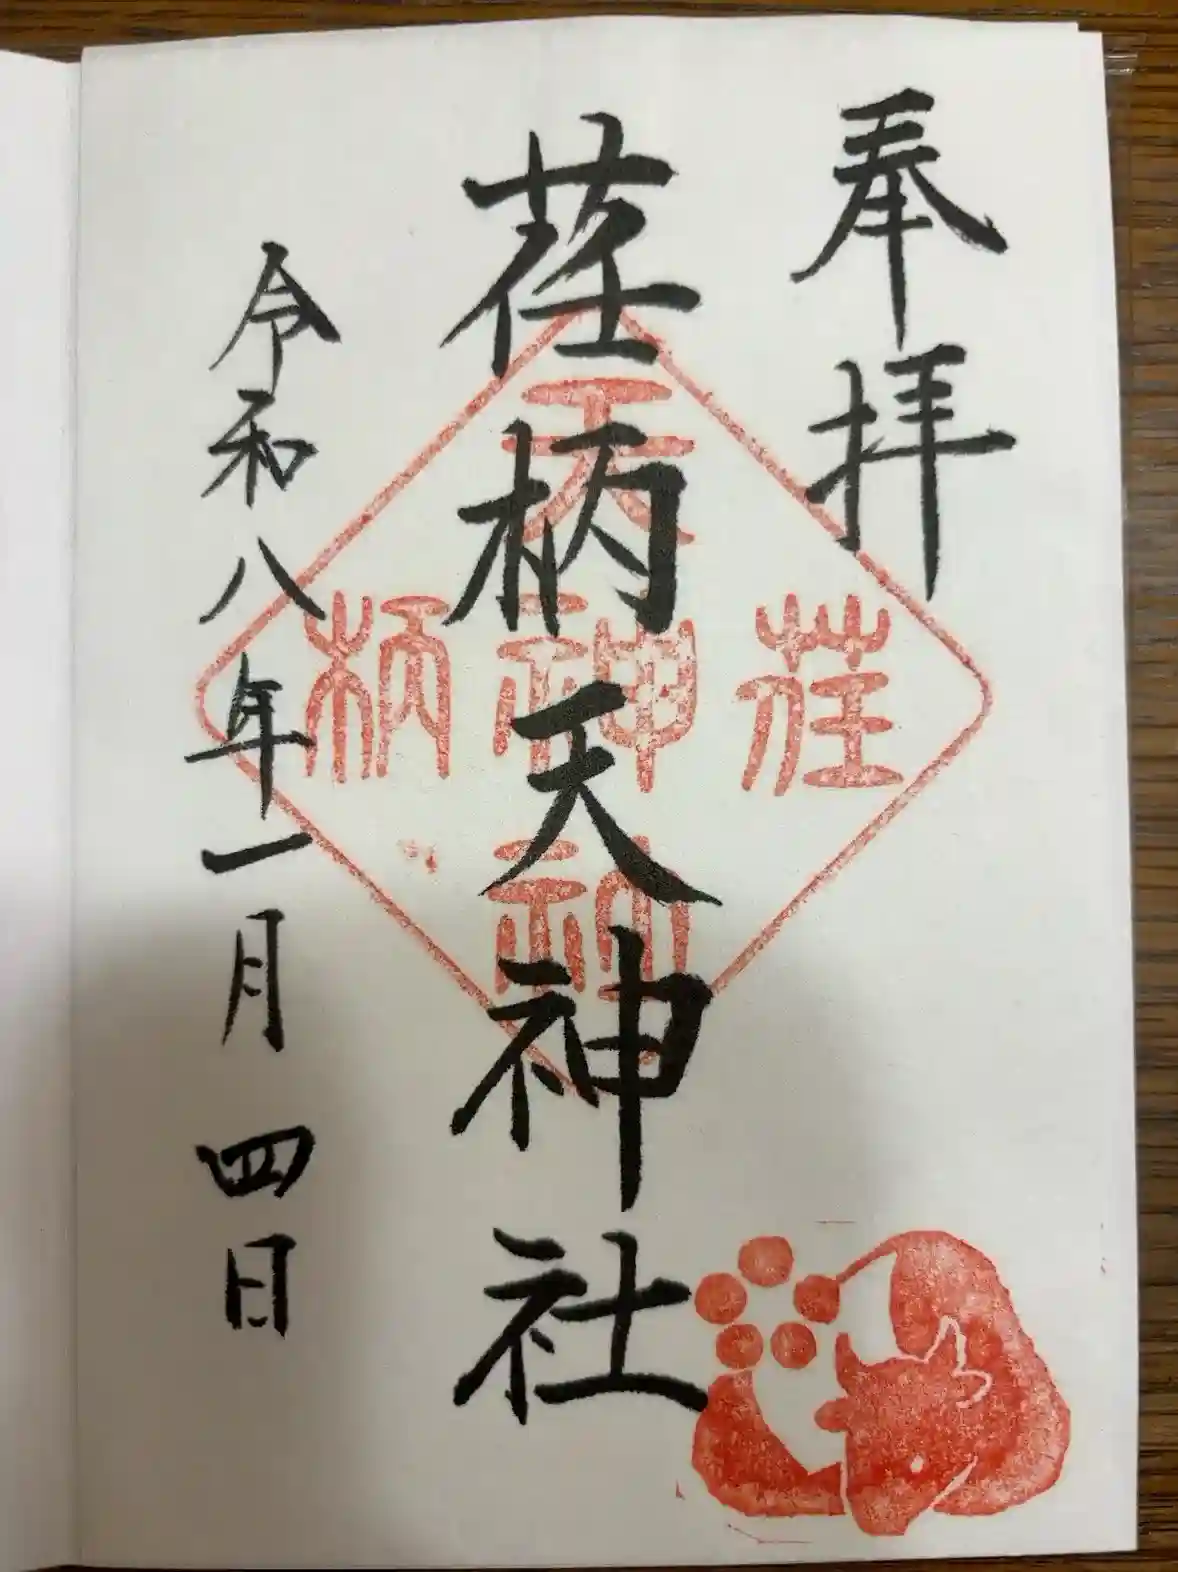 奉拝
荏柄天神社
令和八年一月四日
天
荏神柄
社